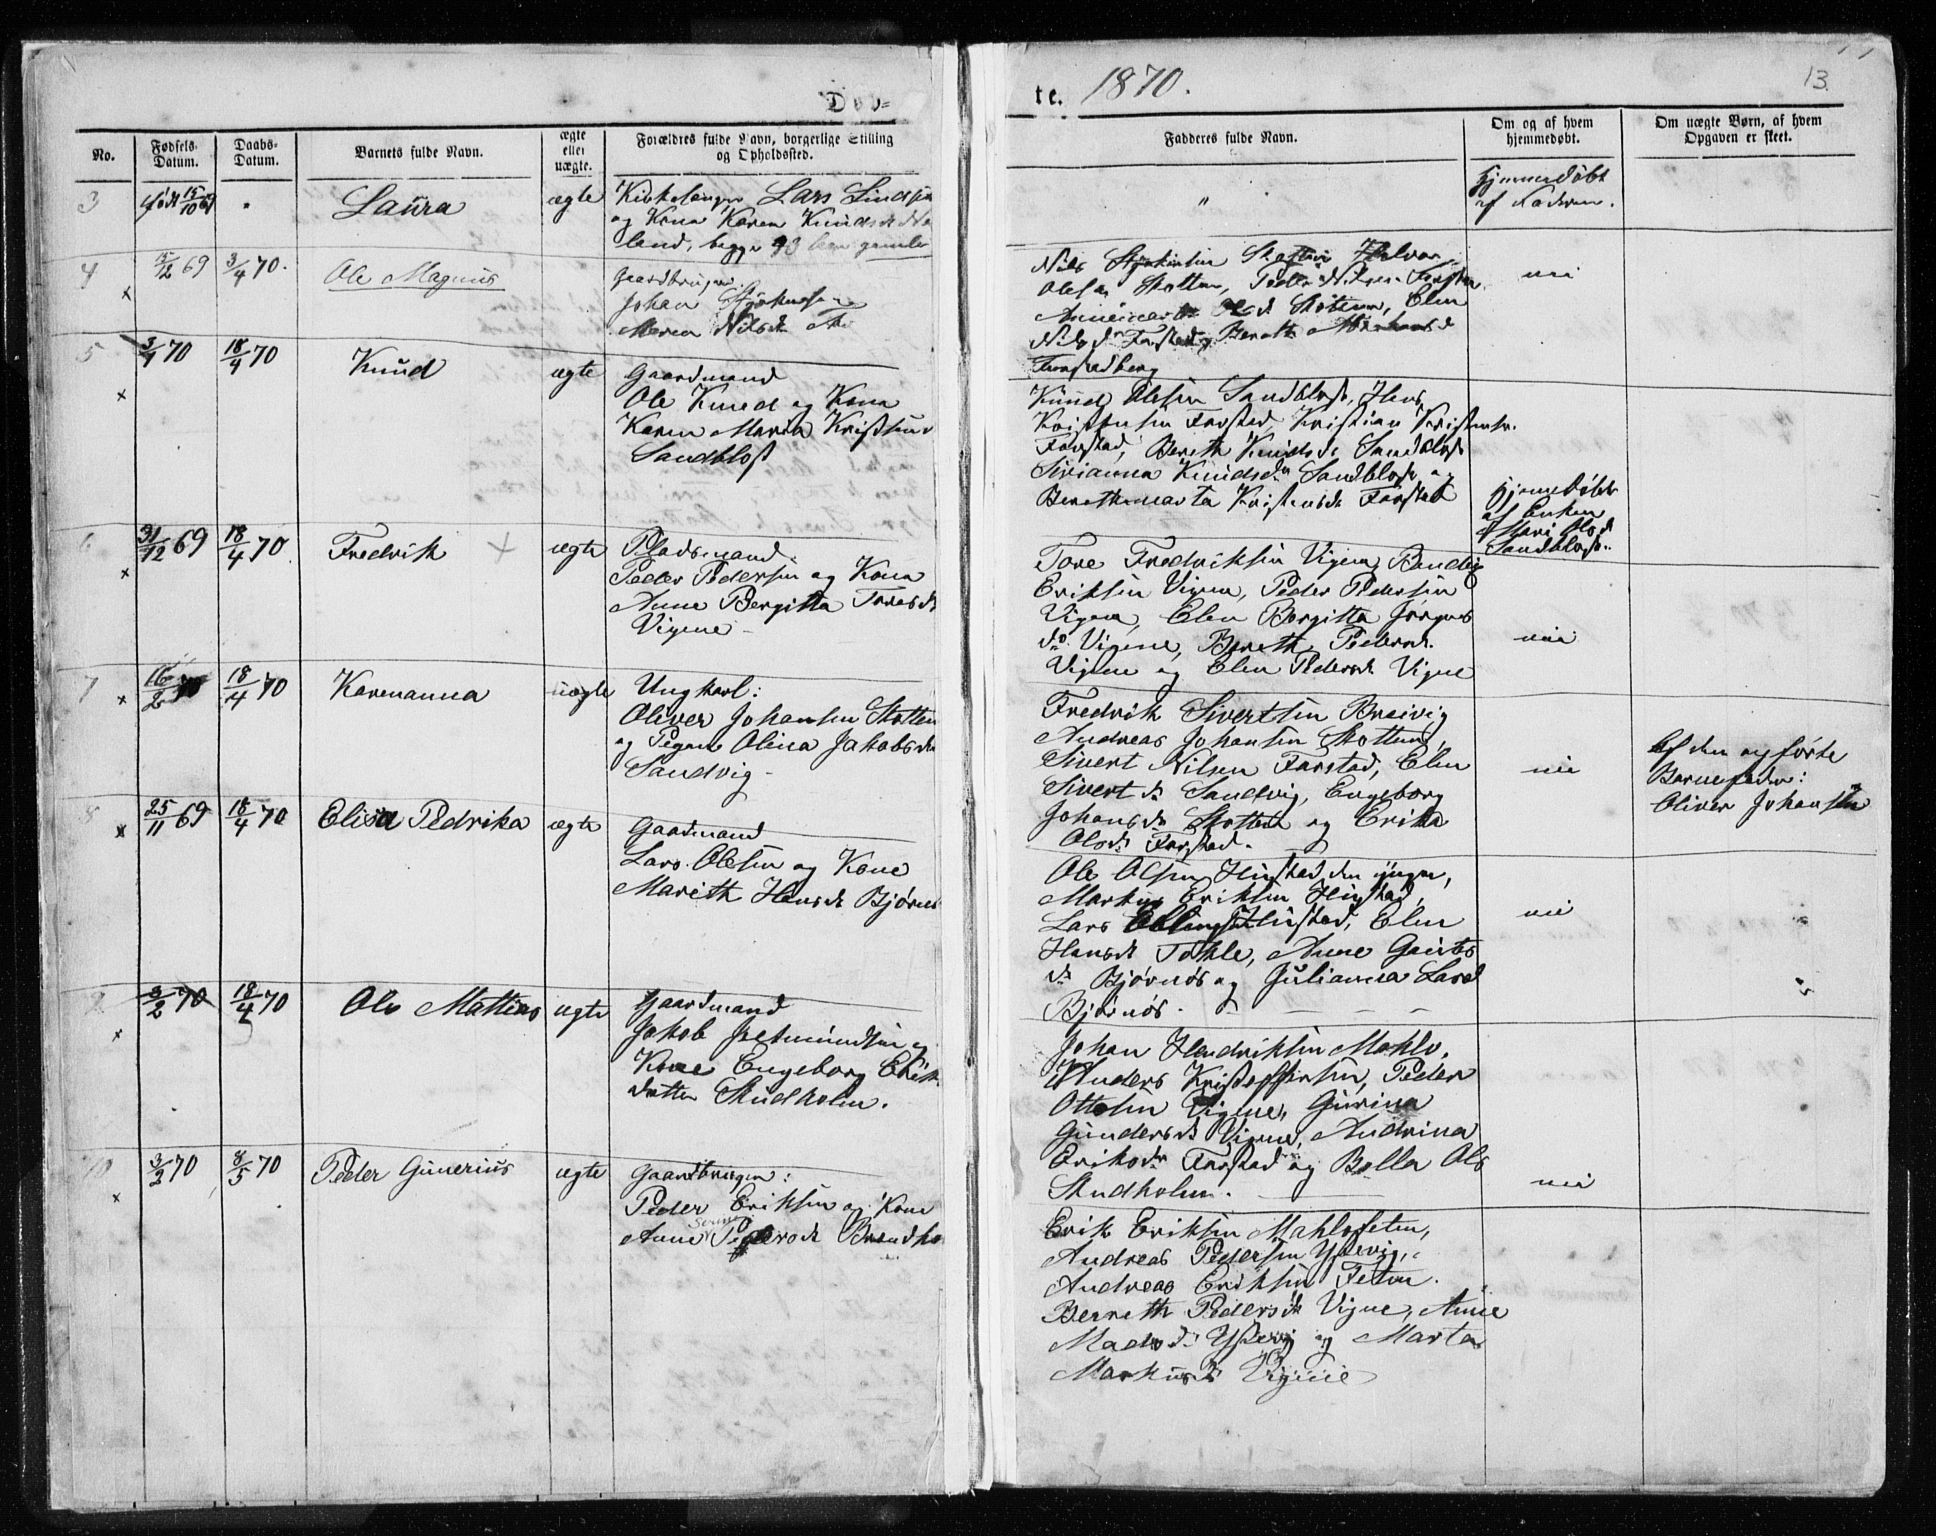 Døb=
te. 1870.
13.
No.
Fødsels-
Datum.
Daabs-
Datum.
Barnets fulde Navn.
ægte
eller
uægte.
Forældres fulde Navn, borgerlige Stilling
og Opholdssted.
Fadderes fulde Navn.
Om og af hvem
hjemmedøbt.
Om uægte Børn, af hvem
Opgaven er skeet.
3
født 15/10 69
"
Laura
ægte
Kirkesanger Lars
og Kona Karen Knudsd
land, begge 43
"
Hjemmedøbt
af Faderen.
4
x
15/12 69
3/4 70.
Ole Magnus
Gaardbruger
Johan
Maren Nilsdr
Nils
Olesen Skotten, Peder Nilsen Farstad
Olsd Skotten, Elen
Nilsdr Farstad, Bereth
Farstadberg
nei
5
x
3/4 70
18/4 70
Knud
ægte
Gaardmand
Ole Knud og Kona
Karen Maria
Sandblost
Knud Olesen Sandblost, Hans
Kristensen Farstad, Kristian Kristens.
Farstad, Bereth Knudsdr Sandblost
Sivianna Knudsdr Sandblost og
Berethmarta Kristensdr Farstad
Hjemedøbt
af Enken
Mari Olsdr
Sandblost.
6
x
31/12 69
18/4 70
Fredrik x
ægte
Pladsmand:
Peder Pedersen og Kona
Anne Bergitta Toresdr
Vigene -
Tore Fredriksen Vigene, Bendig
Eriksen Vigene, Peder Pedersen
Vigene, Elen Bergitta Jørgens
dr Vigene, Bereth Pedersdr
Vigene og Elen Pedersdr Vigne
nei
7
x
16/2 70
18/4 70
Karenanna
uægte
Ungkarl:
Oliver Johansen Skotten
og Pigen Olina Jakobsdr
Sandvig -
Fredrik Sivertsen Breivig
Andreas Johansen Skotten,
Sivert Nilsen Farstad, Elen
Sivertdr Sandvig, Engeborg
Johansdr Skotten og Erika
Olsdr Farstad.
nei
Af den opførte
Barnefader:
Oliver Johansen
8
x
25/11 69
18/4 70
Elisa Pedrika
ægte
Gaardmand
Lars Olesen og Kone
Mareth Hansdr Bjørnøs
Ole Olsen Hustad den yngre,
Markus Eriksen Hustad,
Lars Ellings Hustad, Elen
Hansdr Tokle, Anne
dr Bjørnøs og Julianna Larsd
Bjørnøs. - - - -
nei
9
x
3/2 70
18/4 70
Ole Mattias
ægte
Gaardmand
Jakob og
Kone Engeborg Eriks
datter Skudholm.
Johan Hendriksen Mahle,
Anders Kristoffersen, Peder
Ottosen Vigene, Gurina
Gundersdr Vigene, Andrina
Eriksdr Farstad og Bolla Ols
Skudholm.
nei
10
x
3/2 70
8/5 70
Peder Gunerius
ægte
Gaardbruger:
Peder Eriksen og Kone
Anne Pedersdr
Erik Eriksen Mahlesæten,
Andreas Pedersen Ystevig,
Andreas Eriksen Feten.
Berreth Pedersdr Vigne, Anne
Madsdr Ystevig og Marta
Markusdr Vigene